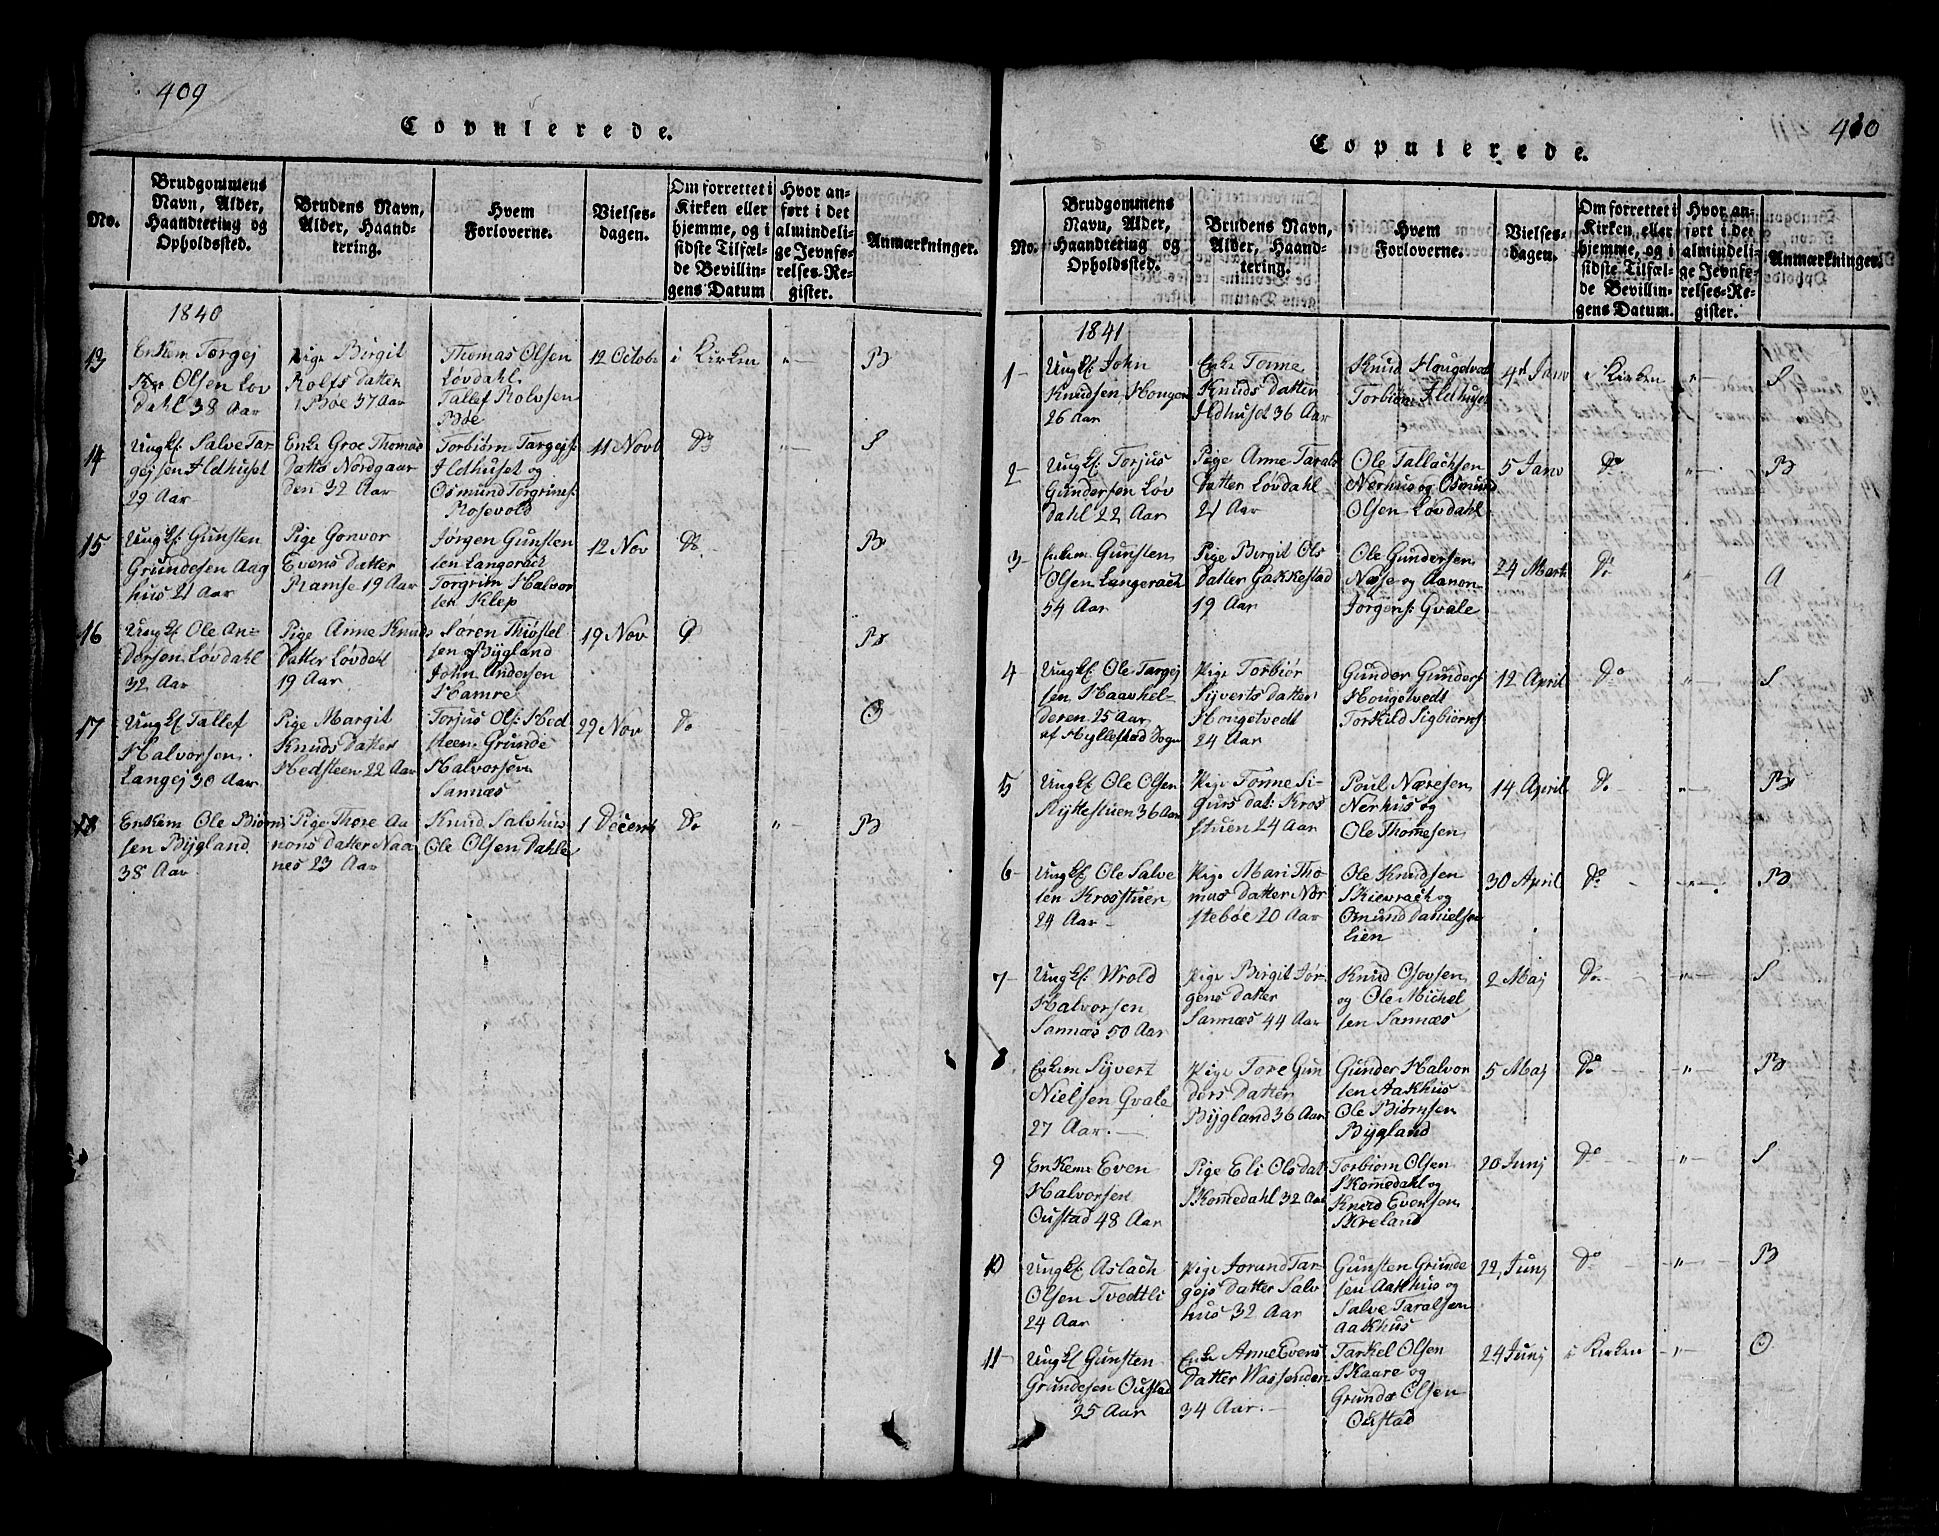 409
Copulerede.
No.
Brudgommens Navn, Alder, Haandtering og Opholdssted.
Brudens Navn, Alder, Haandtering.
Hvem Forloverne.
Vielsesdagen.
Om forrettet i Kirken eller hjemme, og i sidste Tilfælde Bevillingens Datum
Hvor anført i det almindelige Jevnførelses-Register.
Anmærkninger.
1840
13
Enkem Torgej
Olsen Lov
dahl 38 Aar
Pige Birgit
Rolfs datter
Bøe 37 Aar
Thomas Olsen
Løvdahl
Tallef Rolvsen
Bøe
12 Octobr
i Kirken
"
B
14
Ungkf: Salve Tar
gejsen Ildhuset
29 Aar
Enke Groe Thomas
datter Nordgaar
den 32 Aar
Torbiørn Targejs:
Ildhuset og
Osmund Torgrims:
Rosevold
11 Novb
Do
S
15
Ungkf: Gunsten
Grundesen Aag
hus 21 Aar
Pige Gonvor
Evens datter
Ramse 19 Aar
Jørgen Gunsten
sen Langerach
Torgrim Halvor
sen Klep
12 Nov
Do.
B
16
Ungkf. Ole An-
dersen Løvdahl
32 Aar
Pige Anne Knuds
datter Løvdahl
19 Aar
Søren Thiøstel
sen Bygland
John Andersen
Hamre
19 Nov
B
17
Ungkf Tallef
Halvorsen
Langej 30 Aar
Pige Margit
Knuds datter
Hedsteen 22 Aar
Torjus Ols: Hed
steen Grunde
Halvorsen
Sannæs
29 Nov
Do
O
18
Enkem Ole Biørn
sen Bygland
38 Aar
Pige Thore Aa
nons datter Naa
nes 23 Aar
Knud Salvhus
Ole Olsen Dahle
1 Decemb
Do
"
B
410
Copulerede.
No.
Brudgommens Navn, Alder, Haandtering og Opholdssted.
Brudens Navn, Alder, Haandtering.
Hvem Forloverne.
Vielsesdagen.
Om forrettet i Kirken eller hjemme, og i sidste Tilfælde Bevillingens Datum.
Hvor anført i det almindelige Jevnførelses-Register.
Anmærkninger.
1841
1
Ungkf. John
Knudsen Hougen
26 Aar
Enke Tonne
Knuds datter
Ildhuset 36 Aar
Knud Hougetvedt
Torbiørn Ildhuset
4de Janv
i Kirken
"
S
2
Ungkf: Torjus
Gundersen Løv
dahl 22 Aar
Pige Anne Tarals
datter Løvdahl
21 Aar
Ole Tallachsen
Nerhus og Osmund
Olsen Løvdahl
5 Janv
Do
"
B
3
Enkem Gunsten
Olsen Langerach
54 Aar
Pige Birgit Ols
datter Gakkestad
19 Aar
Ole Gundersen
Næse og Aanon
Jorgens: Qvale
24 Marti
Do
"
A
4
Ungkf: Ole Targej
sen Haavhel-
deren 25 Aar
af Hyllestad Sogn
Pige Torbiør
Syverts datter
Hougetvedt
24 Aar
Gunder Gunders
Hougetvedt
Torkild Sigbiørns
12 April
Do
"
S
5
Ungkf Ole Olsen
Nykkestuen 36 Aar
Pige Tonne Si-
gurs dat: Kros
stuen 24 Aar
Poul Næresen
Nerhus og
Ole Thomesen
14 April
Do
"
B
6
Ungkf. Ole Salve
sen Krosstuen
24 Aar
Pige Mari Tho
mas datter Nor
stebøe 20 Aar
Ole Knudsen
Skievrach og
Omund Danielsen
Lien
30 April
Do
"
B
7
Ungkf. Wrold
Halvorsen
Sannæs 50 Aar
Pige Birgit Jør
gens datter
Sannæs 44 Aar
Knud Olsen
og Ole Michel
sen Sannæs
2 Maj
Do
"
S
8
Enkem Syvert
Nielsen Qvale
27 Aar.
Pige Tore Gun
ders datter
Bygland 36 Aar
Gunder Halvor
sen Aakhus
Ole Biørnsen
Bygland
5 Maj
Do
"
B
9
Enkem Even
Halvorsen
Oustad 48 Aar
Pige Eli Ols dat
Skomedahl 32 Aar
Torbiørn Olsen
Skomedahl og
Knud Evensen
Skreland
20 Junj
Do
"
S
10
Ungkf. Aslach
Olsen Tvedtli
24 Aar
Pige Jorund Tar-
gejs datter Salv
hus 32 Aar
Gunsten Grunde
sen Aakhus og
Salve Taralsen
Aakhus
22 Junj
Do
"
B
11
Ungkf Gunsten
Grundesen Oustad
25 Aar
Enke Anne Evens
datter Wassenden
34 Aar.
Tarkel Olsen
Skaare og
Grunde Olsen
Oustad
24 Junj
i Kirken
"
O